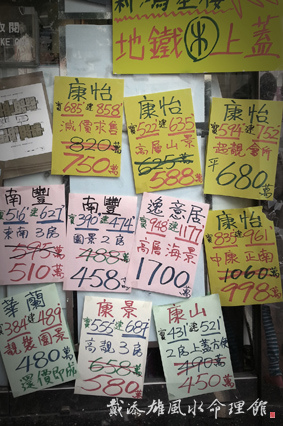 地鐵木上蓋
康怡
實685建858
減價求售
820萬
750萬
康怡
實522建635
高層山景
625萬
588萬
康怡
實594建752
超靚會所
平680萬
南豐
實516建627
東南3房
595萬
510萬
南豐
實390建474
園景2房
488萬
458萬
逸意居
實948建1171
高層海景
1700萬
康怡
實835建961
中康正南
1060萬
998萬
華蘭
實384建489
靚裝園景
480萬
還價即傾
康景
實555建687
高靚3房
658萬
580萬
康山
實431建521
2房上蓋方便
490萬
450萬
戴添雄風水命理館